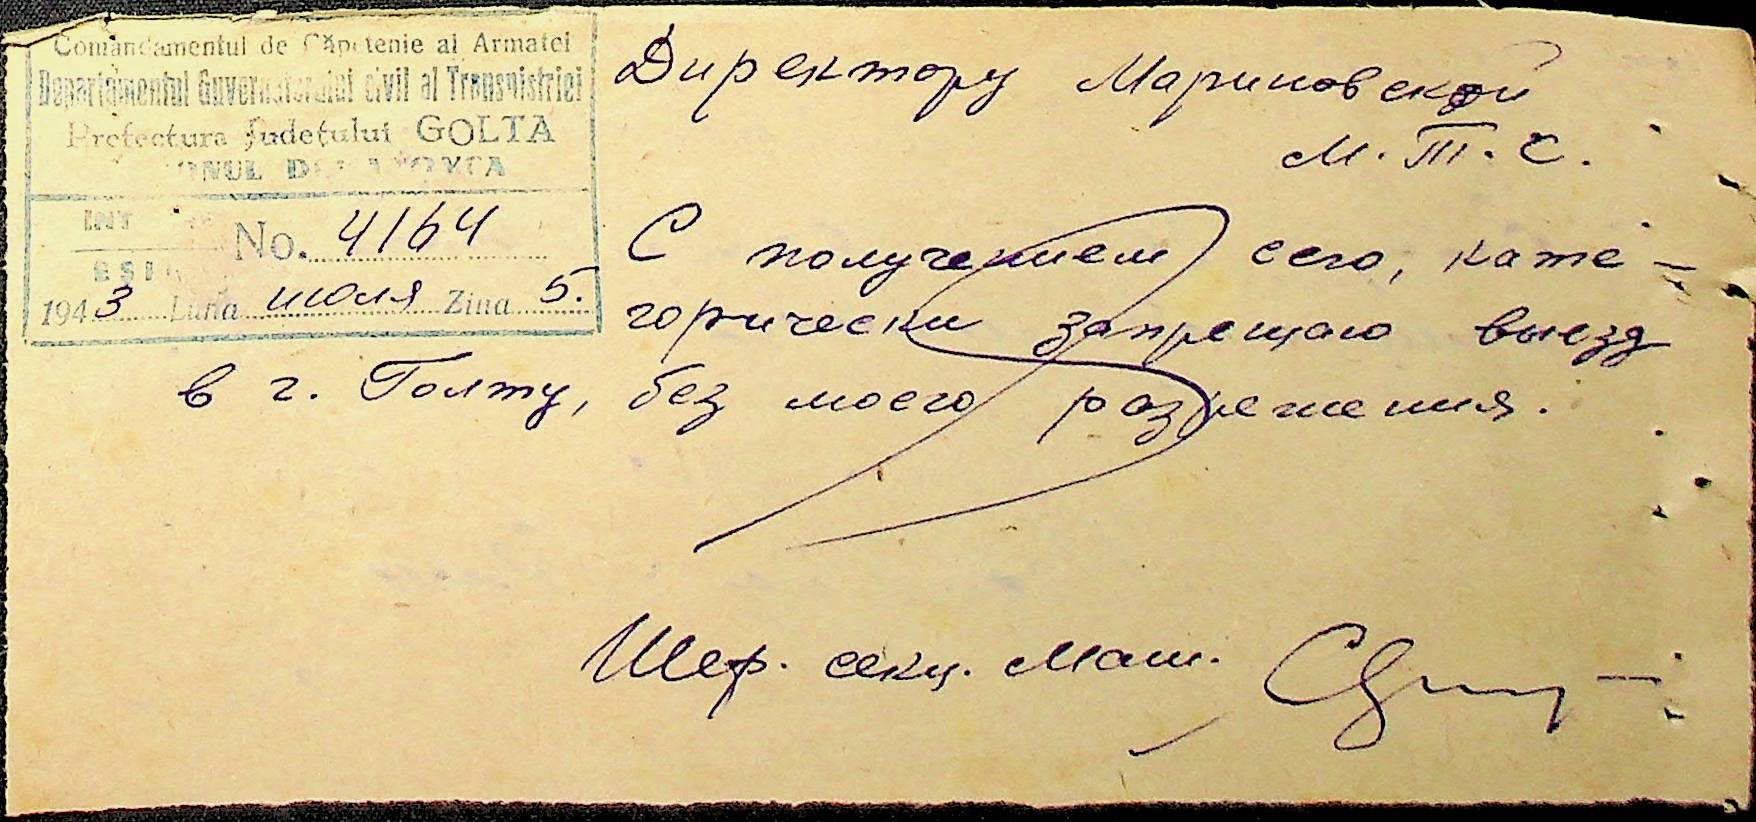 Comandamentul de Căpetenie al Armatei
Departamentul Guvernatorului civil al Transnistriei
Prefectura Județului GOLTA
No. 4164
1943 Luna июля Ziua 5.
Директору Мариновской
М.Т.С.
С получением сего, кате-
горически запрещаю выезд
в г. Голту, без моего разрешения.
Шеф. секц. Маш.